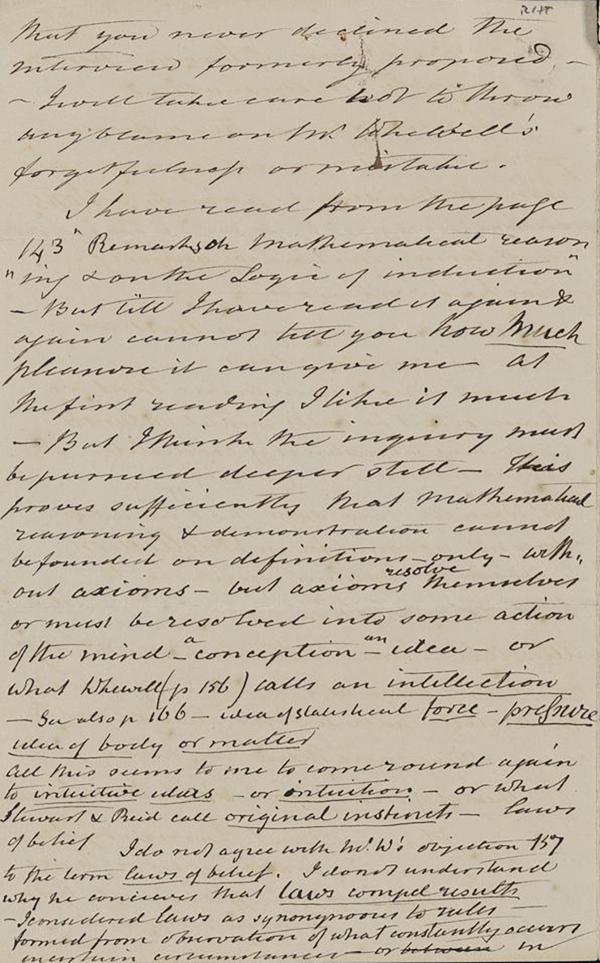 that you never declined the
interview formerly proposed. –
– I will take care not to throw
any blame on Mr. Whewell's
forgetfulness or mistake.
I have read from the page
143 " Remarks on mathematical reason
" ing & on the Logic of induction "
– But till I have read it again &
again cannot tell you how much
pleasure it can give me – at
the first reading I like it much
– But I think the inquiry must
be pursued deeper still – This
proves sufficiently that mathematical
reasoning & demonstration cannot
be founded on definitions only – with-
out axioms – but axioms resolve themselves
or must be resolved into some action
of the mind – a conception – an idea – or
what Whewell (p 156) calls an intellection
– See also p 166 – idea of statistical force – pressure
idea of body or matter
all this seems to me to come round again
to intuitive ideas – or intuition – or what
Stewart & Reid call original instincts – laws
of belief I do not agree with Mr. W's objection 157
to the term laws of belief. I do not understand
why he conceives that laws compel results
– I considered laws as synonymous to rules
formed from observation of what constantly occurs
in certain circumstances – or between in